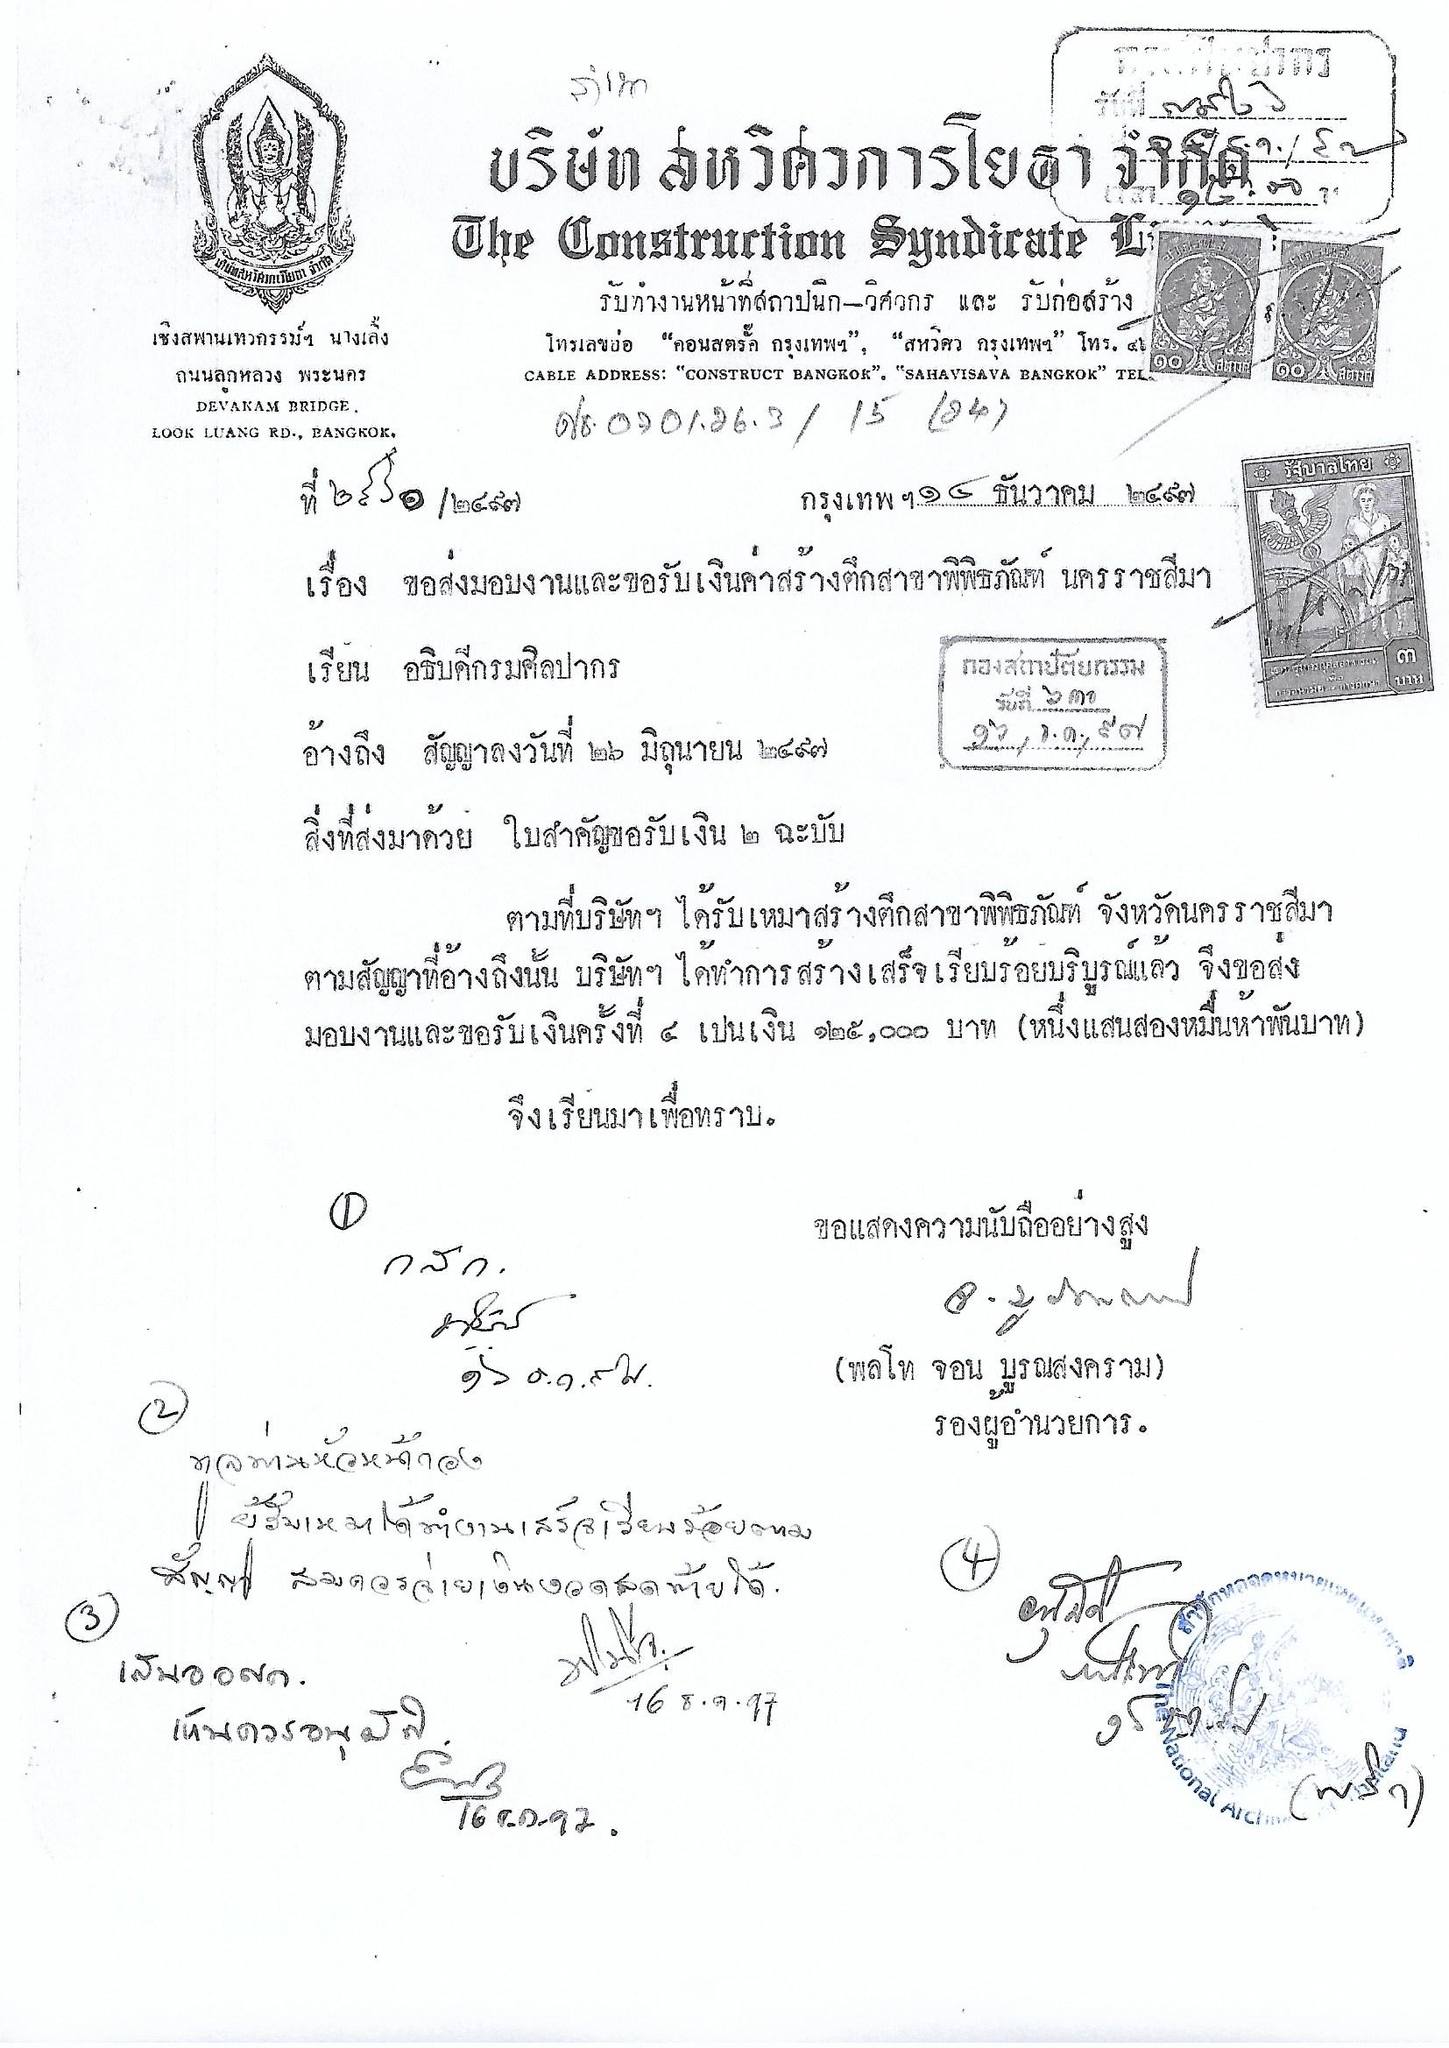 บริษัท สหวิศวการโยธา จำกัด
The Construction Syndicate
รับทำงานหน้าที่สถาปนิก—วิศวกร และ รับก่อสร้าง
โทรเลขย่อ “คอนสตรั๊ค กรุงเทพฯ”, “สหวิศว กรุงเทพฯ” โทร.
CABLE ADDRESS: “CONSTRUCT BANGKOK”. “SAHAVISAVA BANGKOK” TEL.
บริษัทสหวิศวการโยธา จำกัด
เชิงสพานเทวกรรม์ฯ นางเลิ้ง
ถนนลูกหลวง พระนคร
DEVAKAM BRIDGE.
LOOK LUANG RD., BANGKOK.
กรมศิลปากร
รับที่
๑๐ สตางค์
๑๐ สตางค์
ศธ.0701.26.3/ 15 (24)
ที่ /๒๔๙๗
กรุงเทพฯ ๑๔ ธันวาคม ๒๔๙๗
รัฐบาลไทย
๓ บาท
เรื่อง ขอส่งมอบงานและขอรับเงินค่าสร้างตึกสาขาพิพิธภัณฑ์ นครราชสีมา
เรียน อธิบดีกรมศิลปากร
กองสถาปัตยกรรม
รับที่ ๖๓๐
๑๖, ธ.ค., ๙๗
อ้างถึง สัญญาลงวันที่ ๒๖ มิถุนายน ๒๔๙๗
สิ่งที่ส่งมาด้วย ใบสำคัญขอรับเงิน ๒ ฉะบับ
ตามที่บริษัทฯ ได้รับเหมาสร้างตึกสาขาพิพิธภัณฑ์ จังหวัดนครราชสีมา
ตามสัญญาที่อ้างถึงนั้น บริษัทฯ ได้ทำการสร้างเสร็จเรียบร้อยบริบูรณ์แล้ว จึงขอส่ง
มอบงานและขอรับเงินครั้งที่ ๔ เปนเงิน ๑๒๕,๐๐๐ บาท (หนึ่งแสนสองหมื่นห้าพันบาท)
จึงเรียนมาเพื่อทราบ.
ขอแสดงความนับถืออย่างสูง
(พลโท จอน บูรณสงคราม)
รองผู้อำนวยการ.
1
กสถ.
๑๖ ธ.ค. ๙๗.
2
ทูลท่านหัวหน้ากอง
ผู้รับเหมาได้ทำงานเสร็จเรียบร้อยตาม
สัญญา สมควรจ่ายเงินงวดสุดท้ายได้.
16 ธ.ค. 97
3
เสนอ อสก.
เห็นควรอนุมัติ.
16 ธ.ค. 97.
4
อนุมัติ
สำนักหอจดหมายเหตุแห่งชาติ
The National Archives of Thailand